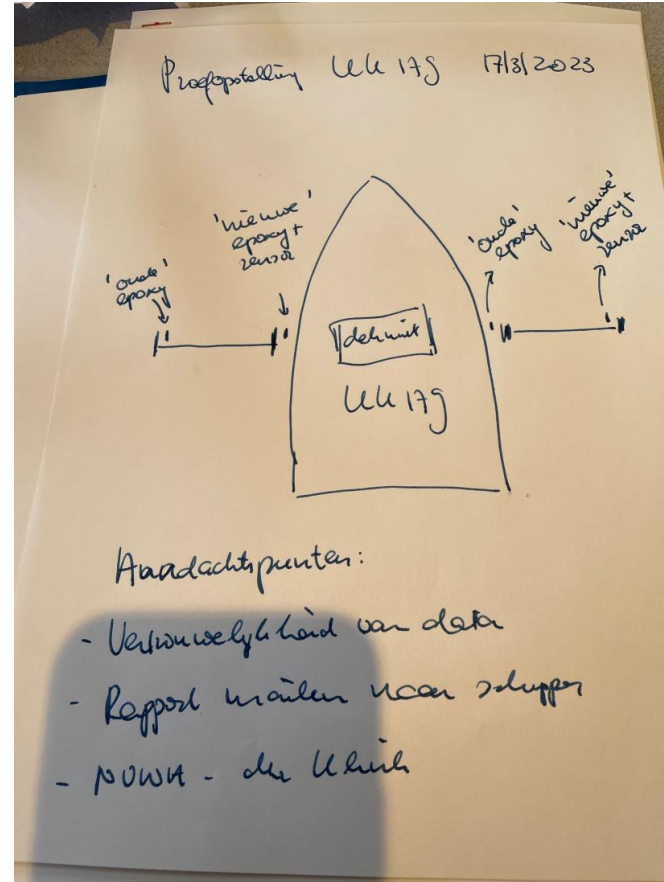 Proefopstelling UK 179 17/3/2023
'oude'
epoxy
'nieuwe'
epoxy +
sensor
'oude'
epoxy
'nieuwe'
epoxy +
sensor
dekunit
UK 179
Aandachtspunten:
- Vertrouwelijkheid van data
- Rapport mailen naar schipper
- NVWA - de